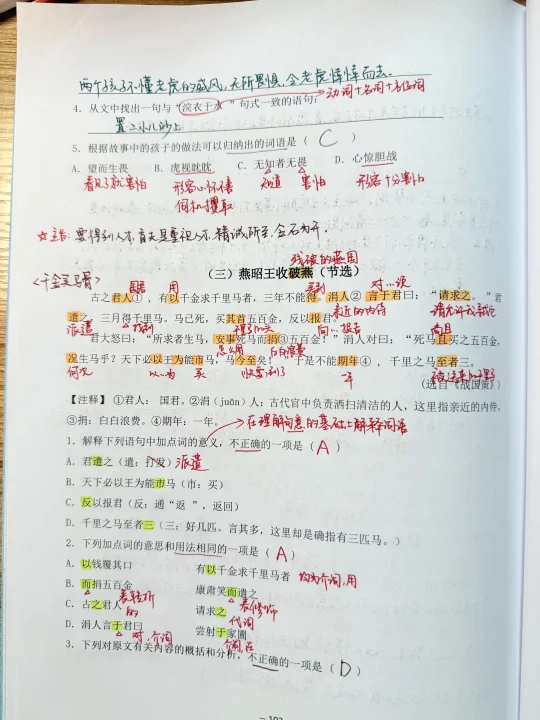 两个孩子不懂老虎的威风，无所畏惧，令老虎悻悻而去。
4. 从文中找出一句与“浣衣于水”句式一致的语句：
动词+名词+方位词
置二小儿沙上
5. 根据故事中的孩子的做法可以归纳出的词语是（ C ）
A. 望而生畏 B. 虎视眈眈 C. 无知者无畏 D. 心惊胆战
看见了就害怕 形容心怀不善 知道 害怕 形容十分害怕
伺机攫取
☆主旨：要得到人才，首先是重视人才，精诚所至，金石为开。
残破的燕国
（三）燕昭王收破燕（节选）
<千金买马骨>
国君 用 得到 对…说
古之君人①，有以千金求千里马者，三年不能得。涓人②言于君曰：“请求之。”君
近的内侍 请允许我
遣之，三月得千里马。马已死，买其首五百金，反以报君。
派遣 找到 向…报告 尚且
君大怒曰：“所求者生马，安事死马而捐③五百金！”涓人对曰：“死马且买之五百金，
怎么 白白浪费
况生马乎？天下必以王为能市马，马今至矣！”于是不能期年④，千里之马至者三。
何况 以…为 买 快要到了 一年
（选自《战国策》）
【注释】①君人：国君。②涓（juān）人：古代官中负责洒扫清洁的人，这里指亲近的内侍。
③捐：白白浪费。④期年：一年。
在理解句意的基础上解释词语
1. 解释下列语句中加点词的意义，不正确的一项是（ A ）
A. 君遣之（遣：打发）派遣
B. 天下必以王为能市马（市：买）
C. 反以报君（反：通“返”，返回）
D. 千里之马至者三（三：好几匹。言其多，这里却是确指有三匹马。）
2. 下列加点词的意思和用法相同的一项是（ A ）
A. 以钱覆其口 有以千金求千里马者 均为介词，用
B. 而捐五百金 康肃笑而遣之
表转折 表修饰
C. 古之君人 请求之
的 代词
D. 涓人言于君曰 尝射于家圃
对，介词 介词，在
3. 下列对原文有关内容的概括和分析，不正确的一项是（ D ）